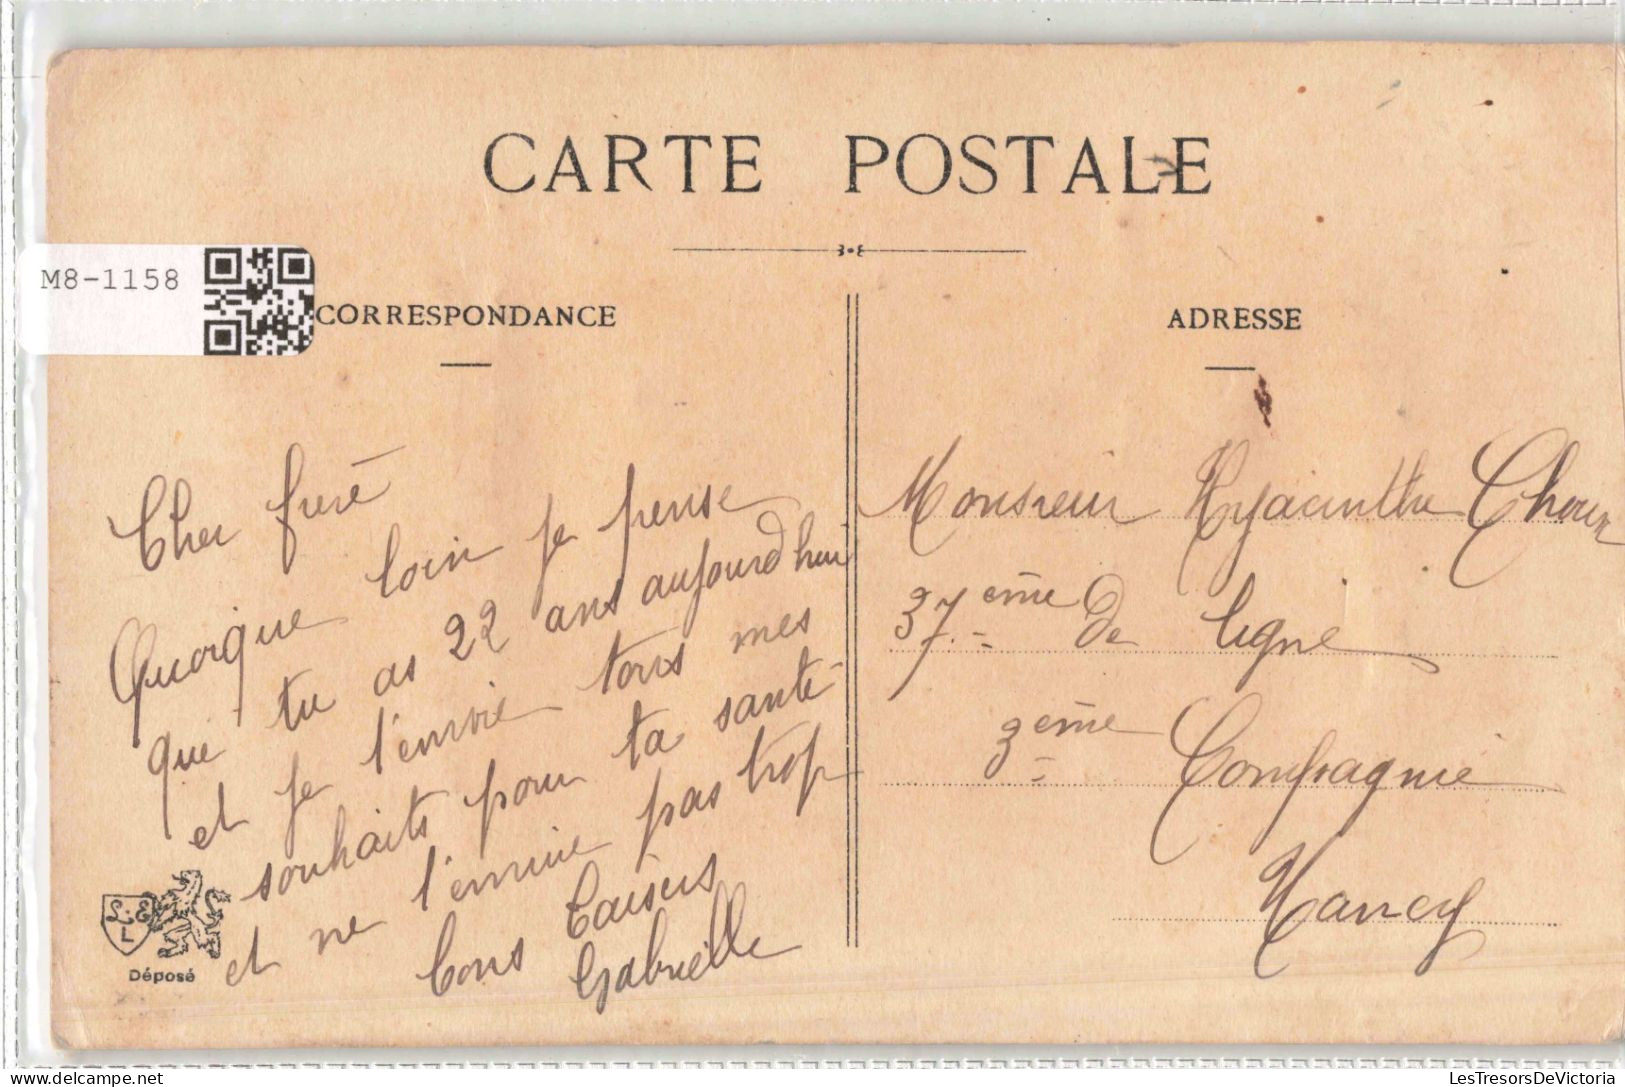 CARTE POSTALE
M8-1158
CORRESPONDANCE
Cher freré
Quoique loin je pense
que tu as 22 ans aujourd hui
et je t'envoie tous mes
souhaits pour ta santé
et ne t'ennuie pas trop
bons baisers
Gabrielle
L.E
L
Déposé
ADRESSE
Monsieur Hyacinthe
37.ème de ligne
3ème Compagnie
Nancy
LesTresorsDeVictoria